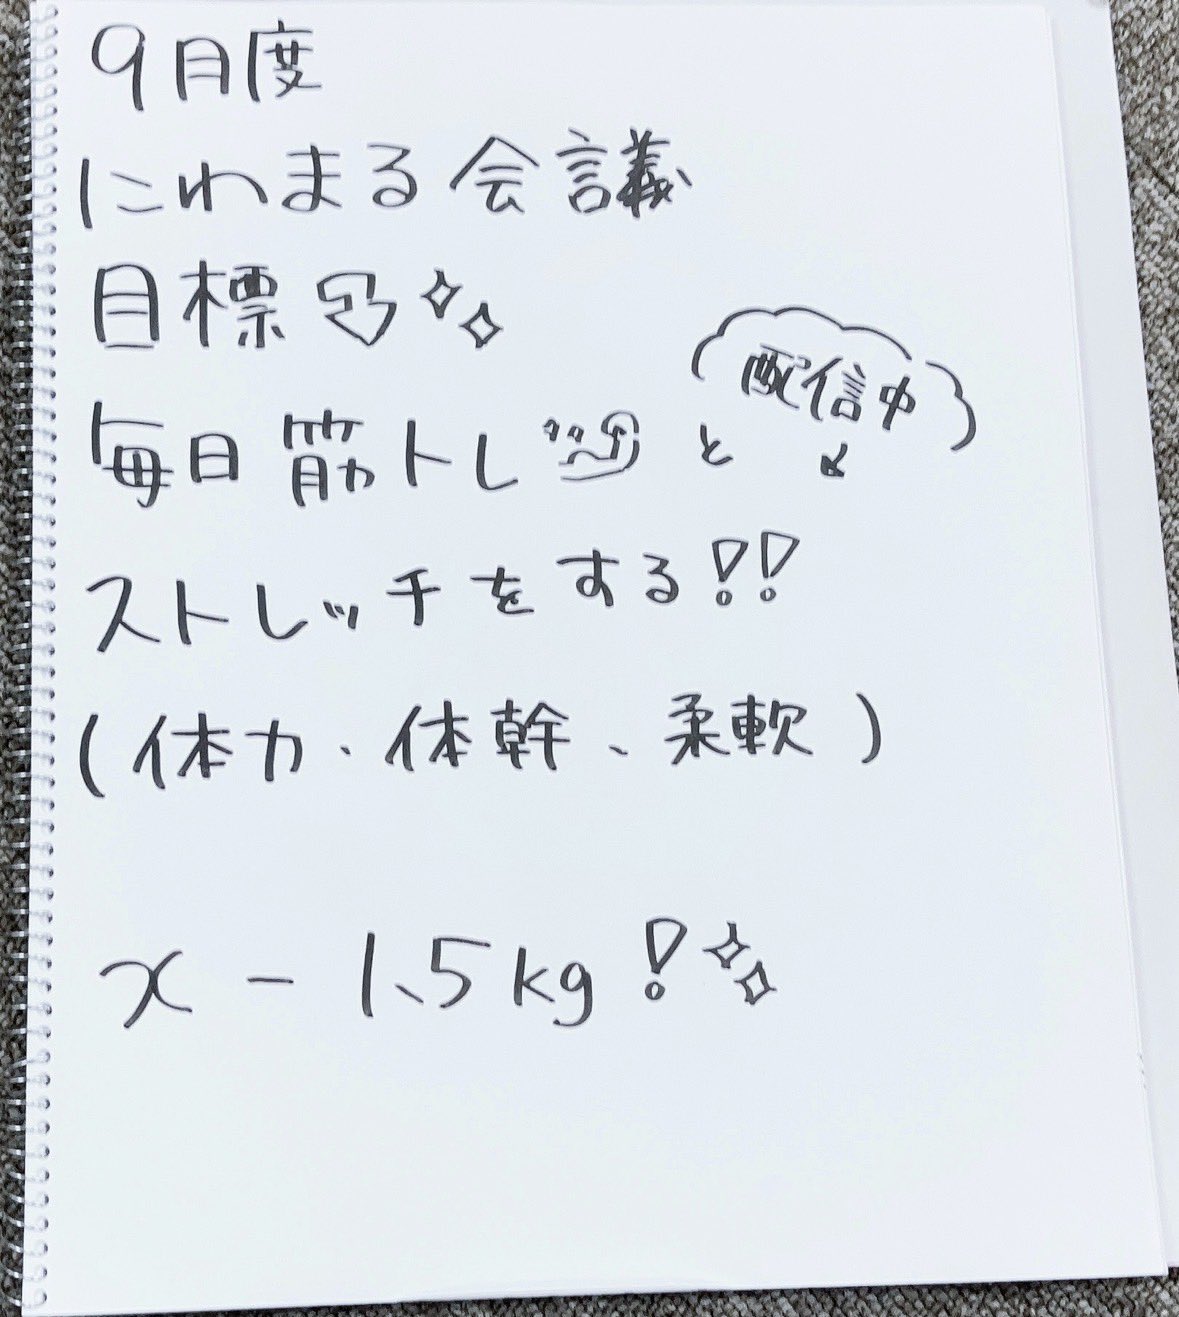 9月度
にわまる会議
目標
毎日筋トレと
配信中
ストレッチをする!!
(体力、体幹、柔軟)
x - 1.5kg!